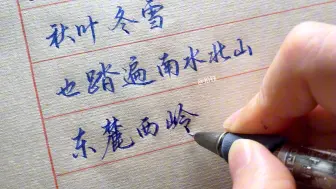 秋叶冬雪
也踏遍南水北山
东麓西岭